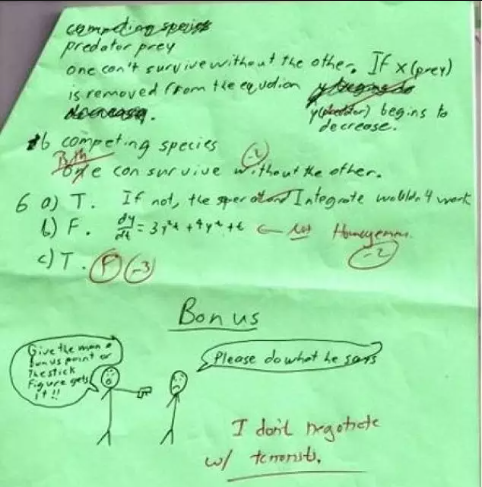 competing species
predator prey
one can't survive without the other. If x(prey)
is removed from the equation y begins to
decrease. y(predator) begins to
decrease.
b competing species
Both -2
one can survive without the other.
6 a) T. If not, the separate and Integrate wouldn't work
b) F. dy/dt = 3y²t + 4y²+t ← not Homogenous.
-2
c) T. F -3
Bonus
Give the man a
bonus point or
the stick
Figure gets
it!!
Please do what he says
I don't negotiate
w/ terrorists.